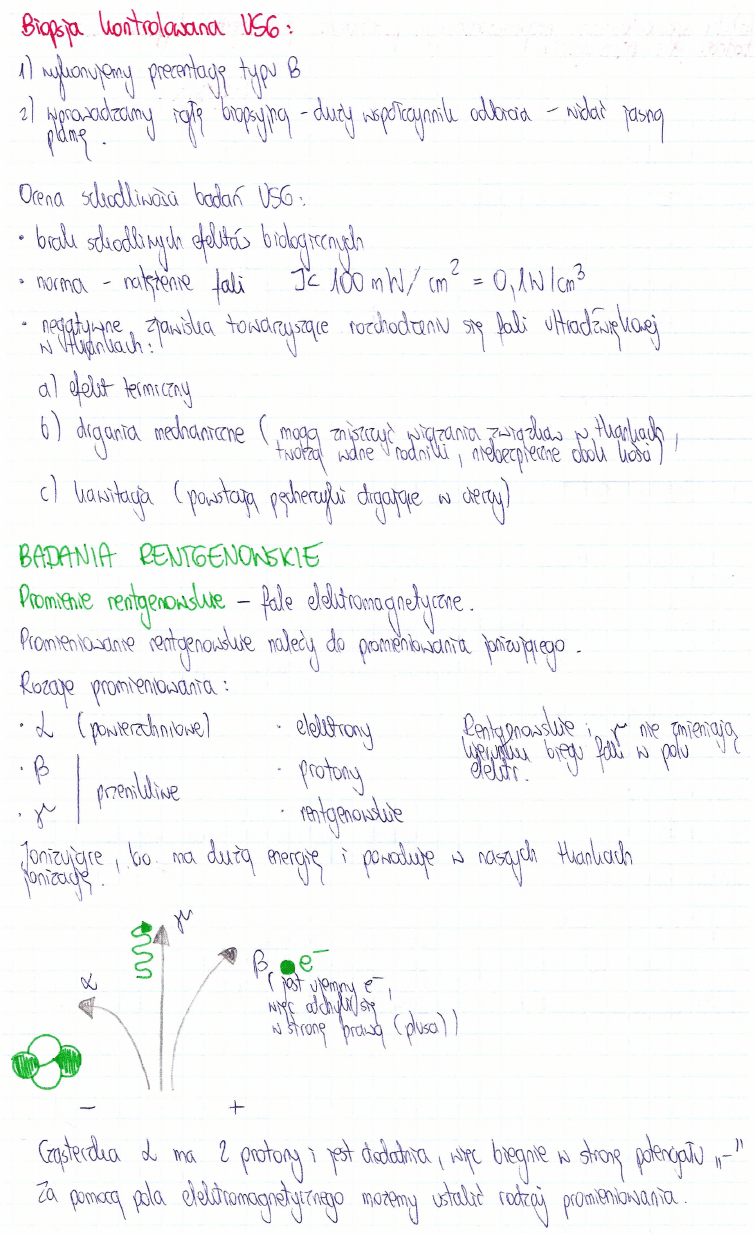 Biopsja kontrolowana USG:
1) wykonujemy prezentację typu B
2) wprowadzamy igłę biopsyjną – duży współczynnik odbicia – widać jasną
plamę.
Ocena szkodliwości badań USG:
• brak szkodliwych efektów biologicznych
• norma – natężenie fali J< 100 mW/cm² = 0,1W/cm³
• negatywne zjawiska towarzyszące rozchodzeniu się fali ultradźwiękowej
w tkankach:
a) efekt termiczny
b) drgania mechaniczne (mogą zniszczyć wiązania związków w tkankach,
tworzą wolne rodniki, niebezpieczne obok kości)
c) kawitacja (powstają pęcherzyki drgające w cieczy)
BADANIA RENTGENOWSKIE
Promienie rentgenowskie – fale elektromagnetyczne.
Promieniowanie rentgenowskie należy do promieniowania jonizującego.
Rozaje promieniowania:
• α (powierzchniowe) • elektrony Rentgenowskie i γ nie zmieniają
kierunku biegu fali w polu
elektr.
• β przenikliwe • protony
• γ • rentgenowskie
Jonizujące, bo ma dużą energię i powoduje w naszych tkankach
jonizację.
γ
α
β e⁻
(jest ujemny e⁻,
więc odchylił się
w stronę prawą (plusa))
– +
Cząsteczka α ma 2 protony i jest dodatnia, więc biegnie w stronę potencjału „–"
Za pomocą pola elektromagnetycznego możemy ustalić rodzaj promieniowania.